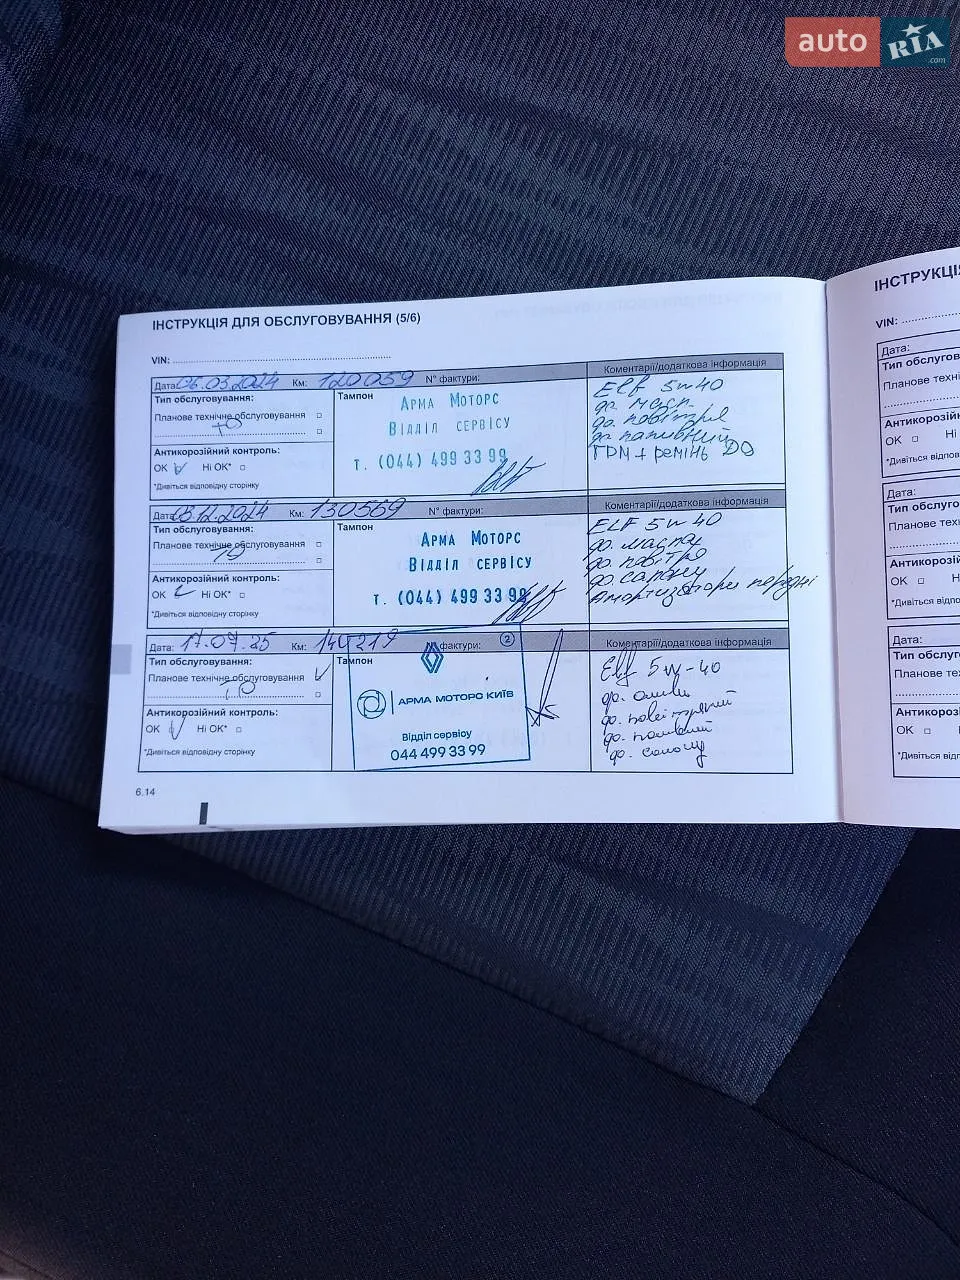 auto RIA.com
ІНСТРУКЦІЯ ДЛЯ ОБСЛУГОВУВАННЯ (5/6)
VIN:
Дата: 06.03.2024 Км: 120059 N° фактури:
Коментарії/додаткова інформація
Тип обслуговування:
Планове технічне обслуговування
ТО
Антикорозійний контроль:
OK Ні OK*
*Дивіться відповідну сторінку
Тампон
Арма Моторс
Відділ сервісу
т. (044) 499 33 99
Elf 5w40
ф. масл.
ф. повітря
ф. паливний
ГРМ + ремінь ДО
Дата: 12.2024 Км: 130569 N° фактури:
Коментарії/додаткова інформація
Тип обслуговування:
Планове технічне обслуговування
Антикорозійний контроль:
OK Ні OK*
*Дивіться відповідну сторінку
Тампон
Арма Моторс
Відділ сервісу
т. (044) 499 33 99
ELF 5w40
ф. масла
ф. повітря
ф. салону
Амортизатори передні
Дата: 17.07.25 Км: 144219 фактури: 2
Коментарії/додаткова інформація
Тип обслуговування:
Планове технічне обслуговування
ТО
Антикорозійний контроль:
OK Ні OK*
*Дивіться відповідну сторінку
Тампон
АРМА МОТОРС КИЇВ
Відділ сервісу
044 499 33 99
Elf 5w-40
ф. оливи
ф. повітряний
ф. паливний
ф. салону
6.14
ІНСТРУКЦІЯ
VIN:
Дата:
Тип обслугов
Планове техні
Антикорозійн
OK Ні
*Дивіться відп
Дата:
Тип обслугов
Планове техні
Антикорозі
OK Ні
*Дивіться відпо
Дата:
Тип обслуг
Планове техн
Антикороз
OK
*Дивіться від